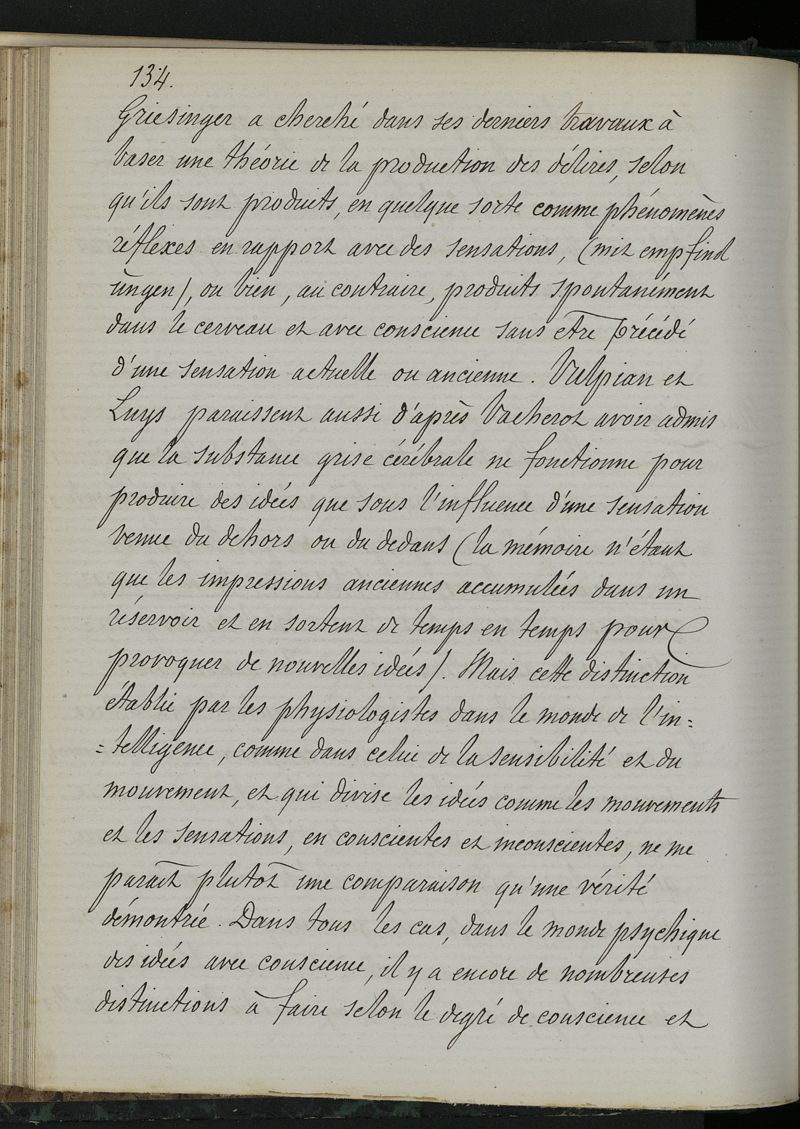 134.
Griesinger a cherché dans ses derniers travaux à
baser une théorie de la production des délires, selon
qu'ils sont produits, en quelque sorte comme phénomènes
réflexes en rapport avec des sensations, (mit empfind
ungen), ou bien, au contraire, produits spontanément
dans le cerveau et avec conscience sans être précédé
d'une sensation actuelle ou ancienne. Vulpian et
Luys paraissent aussi d'après Vacherot avoir admis
que la substance grise cérébrale ne fonctionne pour
produire des idées que sous l'influence d'une sensation
venue du dehors ou du dedans (la mémoire n'étant
que les impressions anciennes accumulées dans un
réservoir et en sortent de temps en temps pour
provoquer de nouvelles idées). Mais cette distinction
établie par les physiologistes dans le monde de l'in=
=telligence, comme dans celui de la sensibilité et du
mouvement, et qui divise les idées comme les mouvements
et les sensations, en conscientes et inconscientes, ne me
paraît plutôt une comparaison qu'une vérité
démontrée. Dans tous les cas, dans le monde psychique
des idées avec conscience, il y a encore de nombreuses
distinctions à faire selon le degré de conscience et